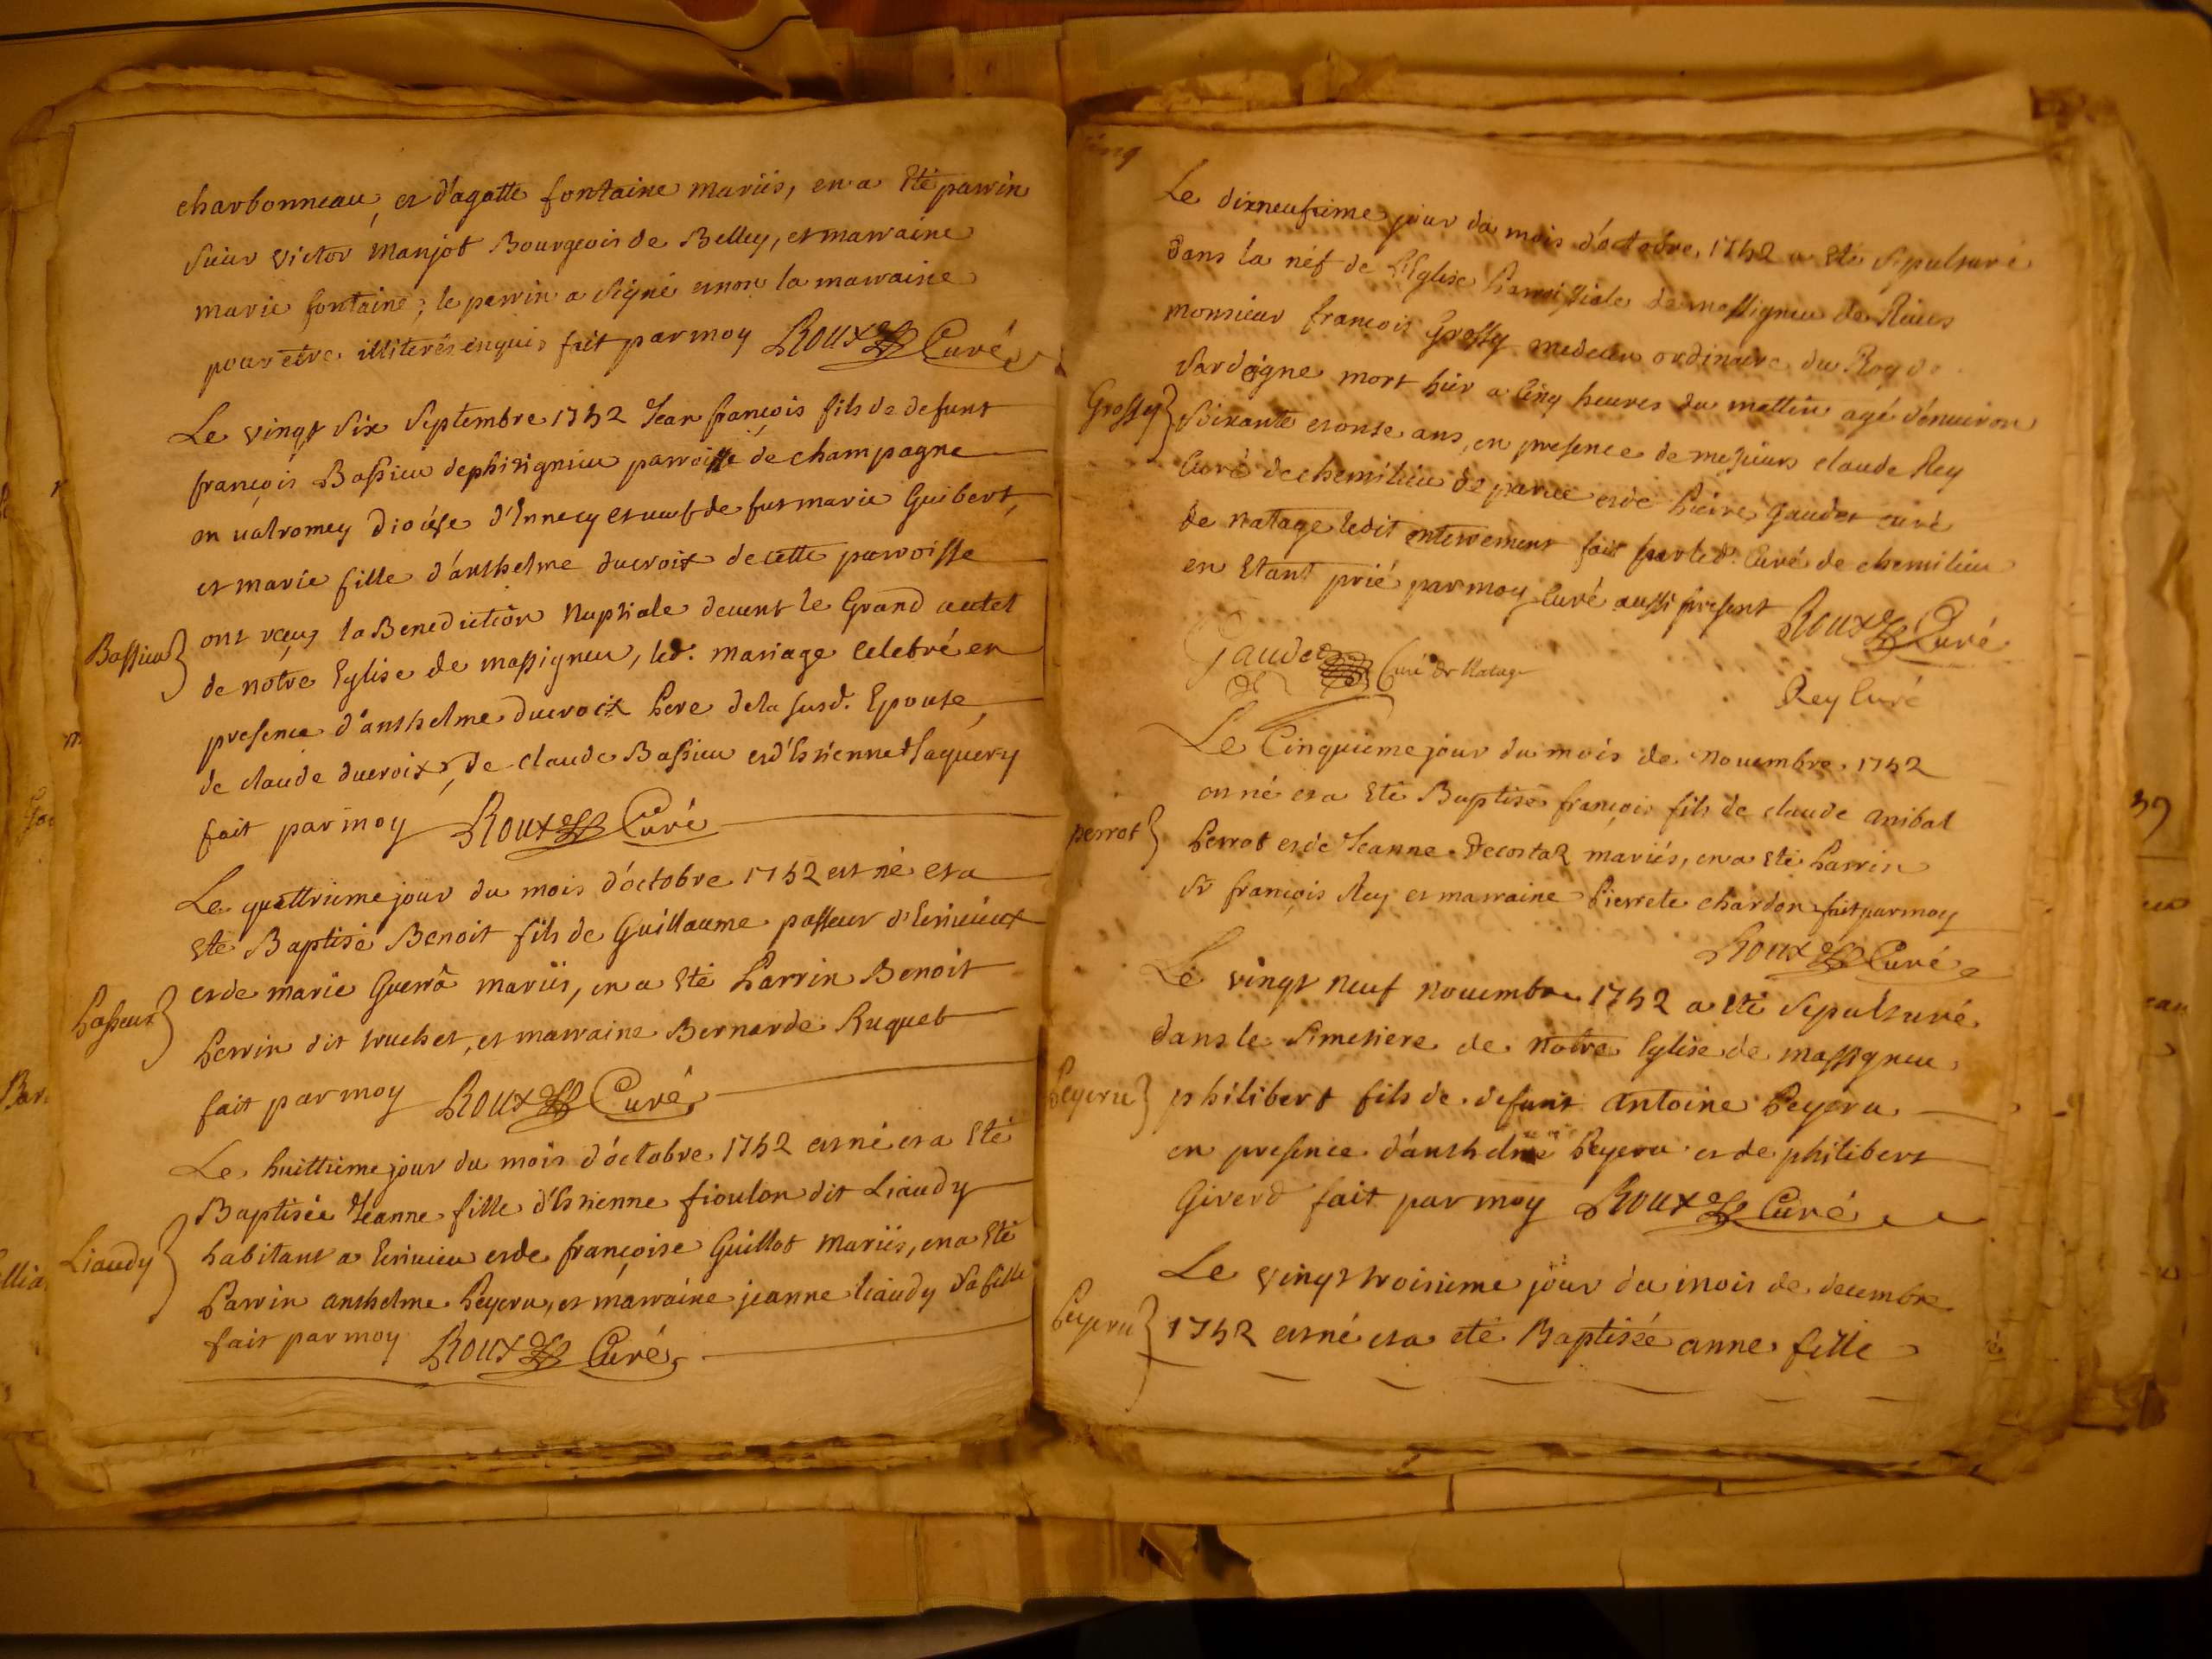 charbonneau, et d'agatte fontaine mariés, en a été parrin
sieur victor Manjot Bourgeois de Belley, et marraine
marie fontaine; le parrin a signé et non la marraine
pour etre illiterés enquis fait par moy Roux Curé
Le vingt six Septembre 1752 Jean françois fils de defunt
françois Bassieu de phisignieu parroisse de champagne
en valromey Diocése d'Ennecy et veuf de fut marie Guibert,
et marie fille d'anthelme ducroix de cette parroisse
Bassieu
ont reçu la Benediction Nuptiale devent le Grand autel
de nôtre Eglise de massigneu, led. mariage celebré en
presence d'anthelme ducroix Pere de la susd. Epouse,
de claude ducroix, de claude Bassieu et d'Estienne Jaquery
fait par moy Roux Curé
Le quattrieme jour du mois d'octobre 1752 est né et a
eté Baptisé Benoit fils de Guillaume passeur d'
Passeur
et de marie Guerra mariés, en a eté Parrin Benoit
Perrin dit truchet, et marraine Bernarde Ruquet
fait par moy Roux Curé
Le huittieme jour du mois d'octobre 1752 est né et a eté
Baptisée Jeanne fille d'Estienne fioulon dit Liaudy
Liaudy
habitant a et de françoise Guillot Mariés, en a eté
Parrin anthelme Peyeru, et marraine jeanne liaudy sa fille
fait par moy Roux Curé
Le dixneufieme jour du mois d'octobre 1752 a eté sepulturé
dans la néf de l'Eglise Parroissiale de massigneu de Rives
monsieur françois Grossy medecin ordinaire du Roy de
Sardaigne mort hier a cinq heures du mattin agé d'environ
Grossy
Soixante et onse ans, en presence de messieurs claude Rey
Curé de chemilieu de parve et de Pierre Gaudet curé
de Natage ledit enterrement fait par led. Curé de chemilieu
en etant prié par moy Curé aussi present Roux Curé
Gaudet Curé de Natage
Rey Curé
Le Cinquieme jour du mois de Novembre 1752
est né et a eté Baptisé françois fils de claude anibal
perrot
Perrot et de Jeanne Decostaz mariés, en a eté Parrin
Sr françois Rey et marraine Pierrete chardon fait par moy
Roux Curé
Le vingt Neuf Novembre 1752 a eté Sepulturé
dans le Simetiere de Notre Eglise de massigneu
Peyeru
philibert fils de defunt antoine Peyeru
en presence d'anthelme Peyeru et de philibert
Giverd fait par moy Roux Curé
Le vingt troisieme jour du mois de decembre
Peyeru
1752 est né et a eté Baptisée anne fille
39